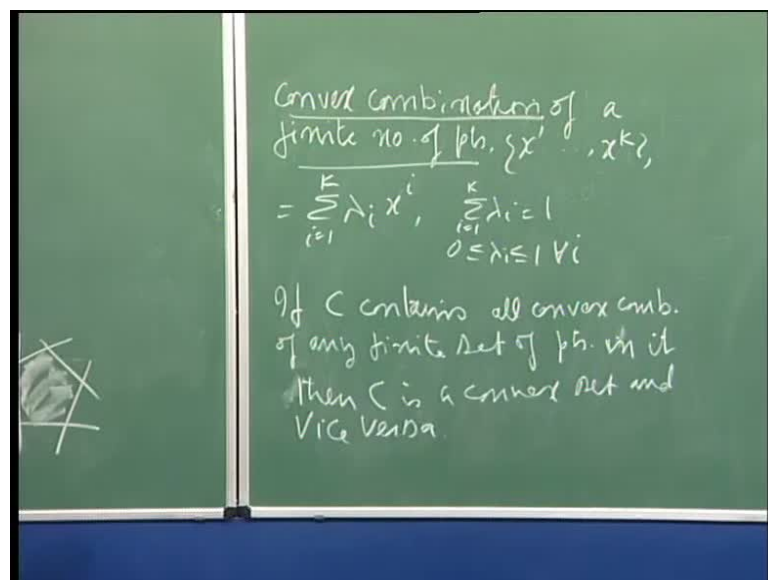 Convex combination of a
finite no. of pts. {x¹ ..., xᵏ},
= Σᵢ₌₁ᴷ λᵢ xⁱ, Σᵢ₌₁ᴷ λᵢ = 1
0 ≤ λᵢ ≤ 1 ∀i
If C contains all convex comb.
of any finite set of pts. in it
then C is a convex set and
Vice Versa.